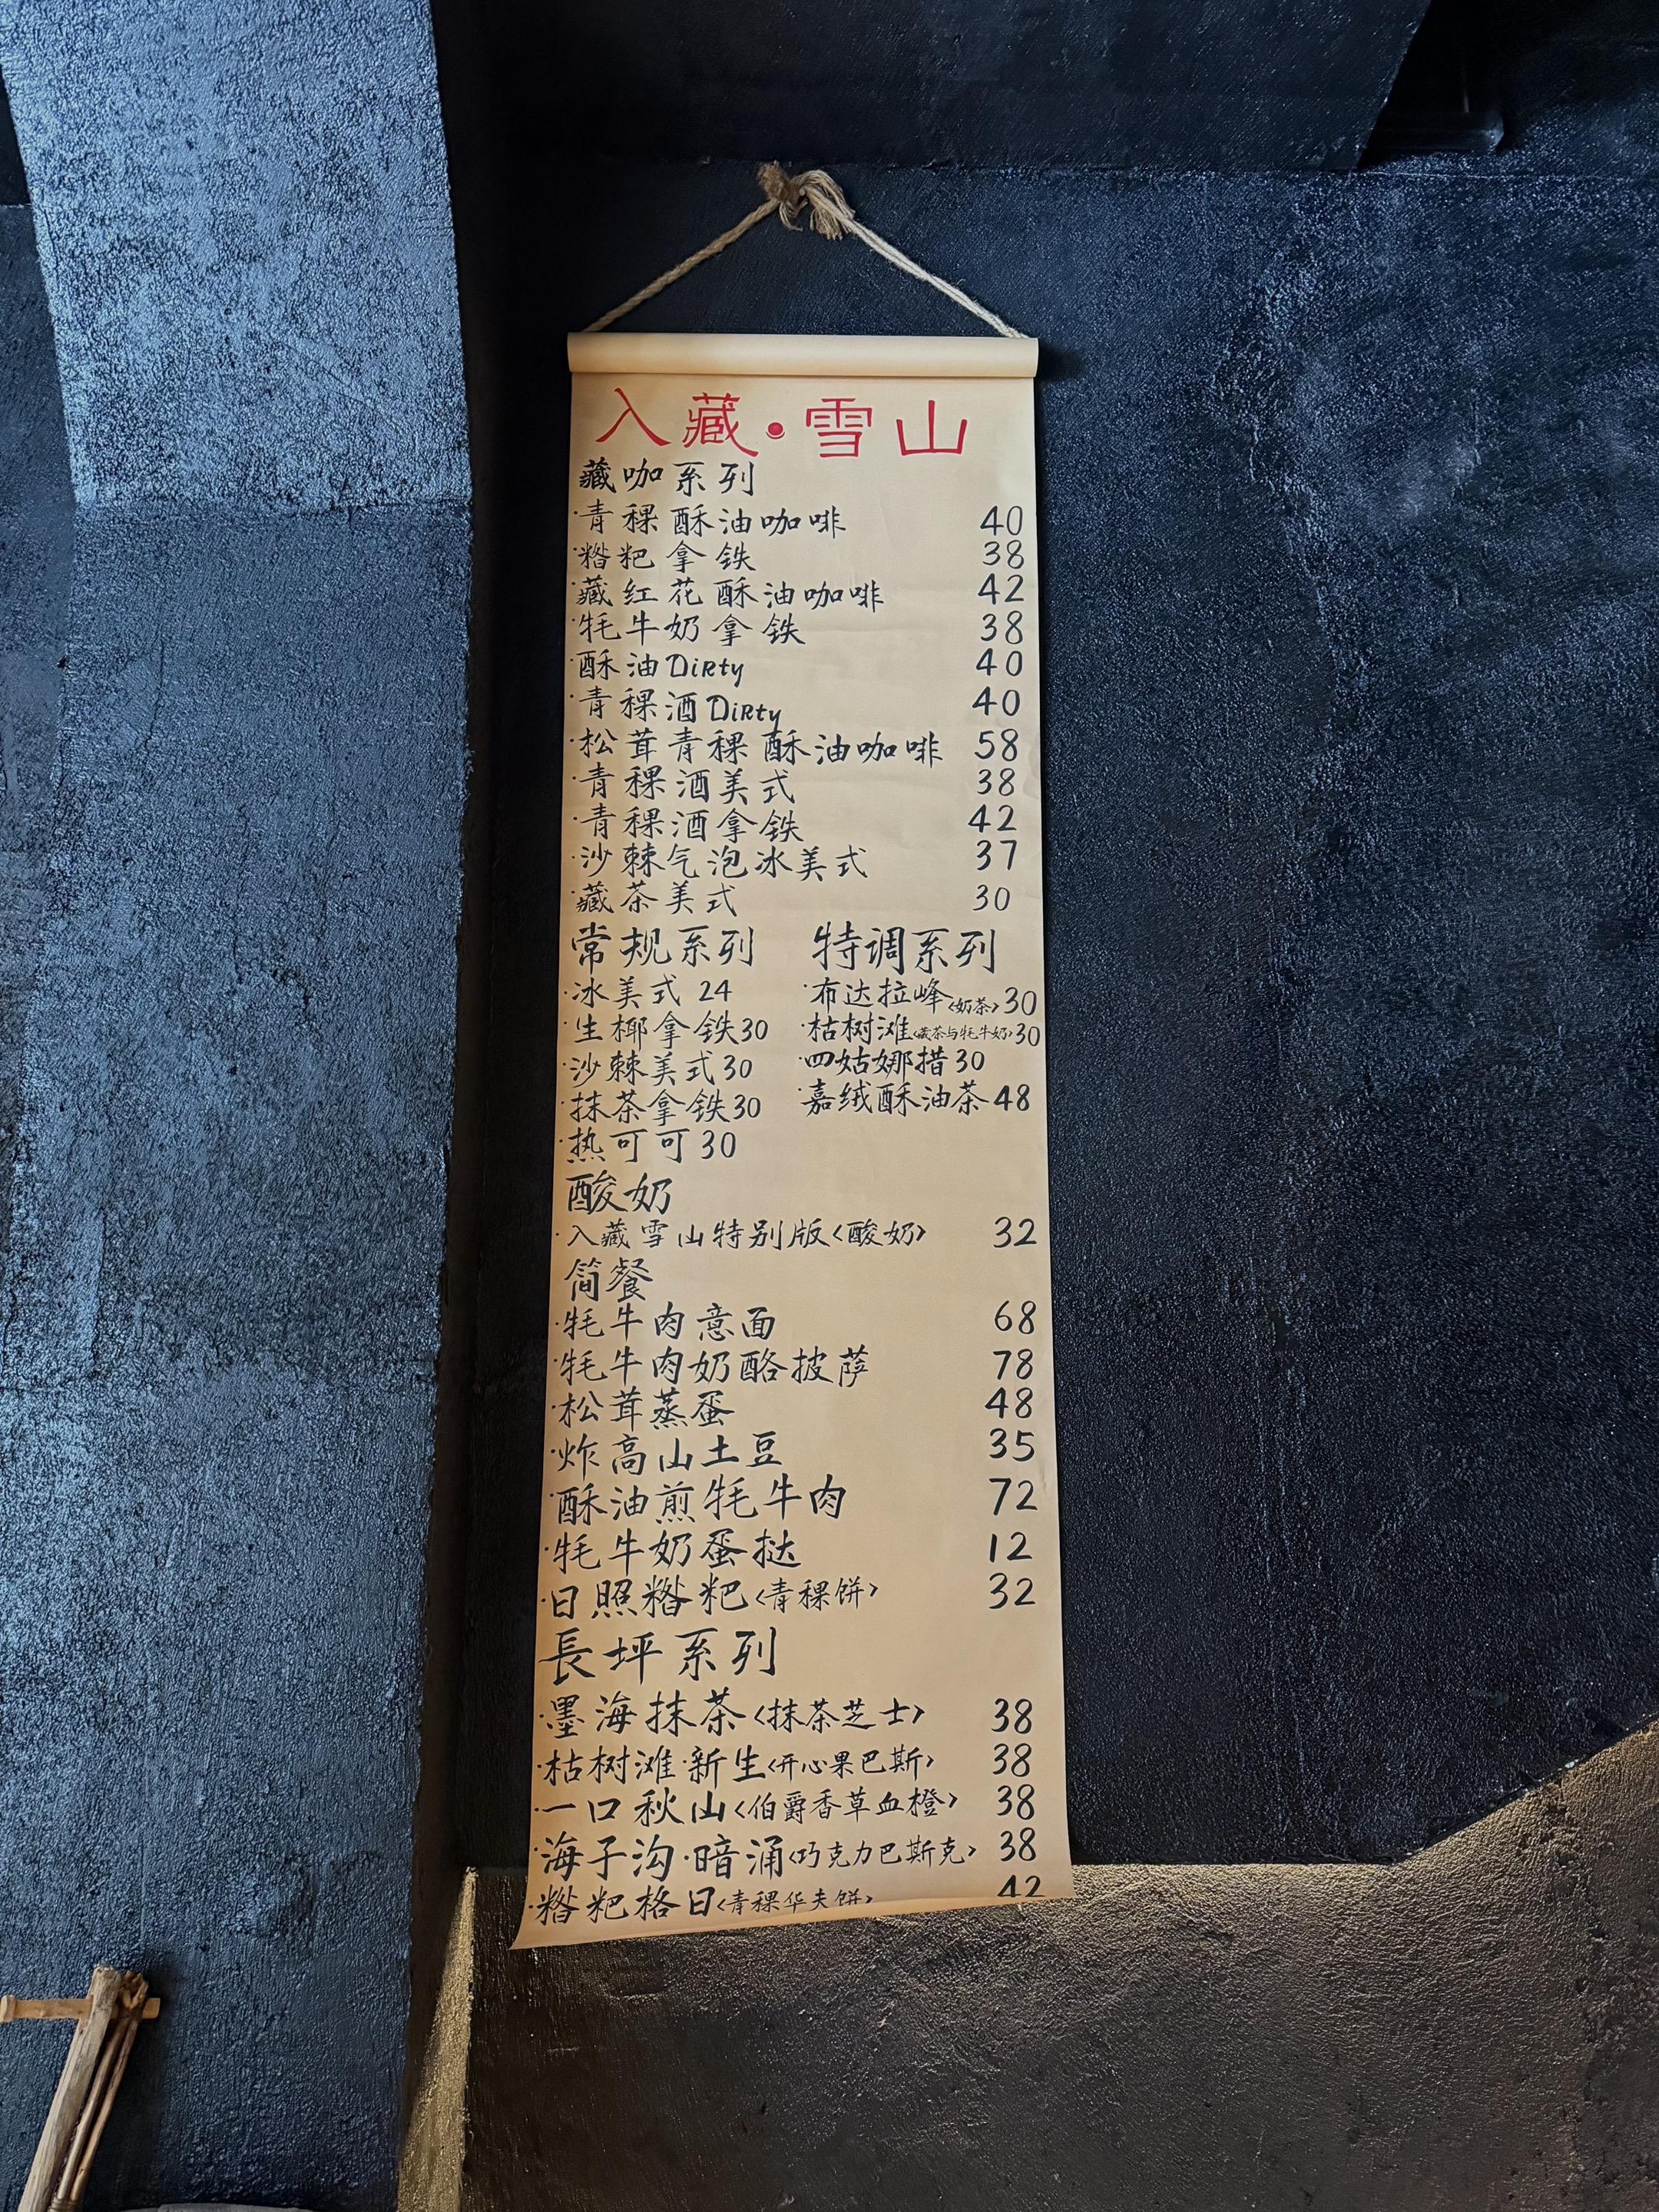 入藏·雪山
藏咖系列
·青稞酥油咖啡 40
·糌粑拿铁 38
·藏红花酥油咖啡 42
·牦牛奶拿铁 38
·酥油DiRty 40
·青稞酒DiRty 40
·松茸青稞酥油咖啡 58
·青稞酒美式 38
·青稞酒拿铁 42
·沙棘气泡冰美式 37
·藏茶美式 30
常规系列
·冰美式 24
·生椰拿铁30
·沙棘美式30
·抹茶拿铁30
·热可可30
特调系列
·布达拉峰<奶茶>30
·枯树滩<藏茶与牦牛奶>30
·四姑娜措30
·嘉绒酥油茶48
酸奶
·入藏雪山特别版<酸奶> 32
简餐
·牦牛肉意面 68
·牦牛肉奶酪披萨 78
·松茸蒸蛋 48
·炸高山土豆 35
·酥油煎牦牛肉 72
·牦牛奶蛋挞 12
·日照糌粑<青稞饼> 32
長坪系列
·墨海抹茶<抹茶芝士> 38
·枯树滩·新生<开心果巴斯> 38
·一口秋山<伯爵香草血橙> 38
·海子沟·暗涌<巧克力巴斯克> 38
·糌粑格日<青稞华夫饼> 42